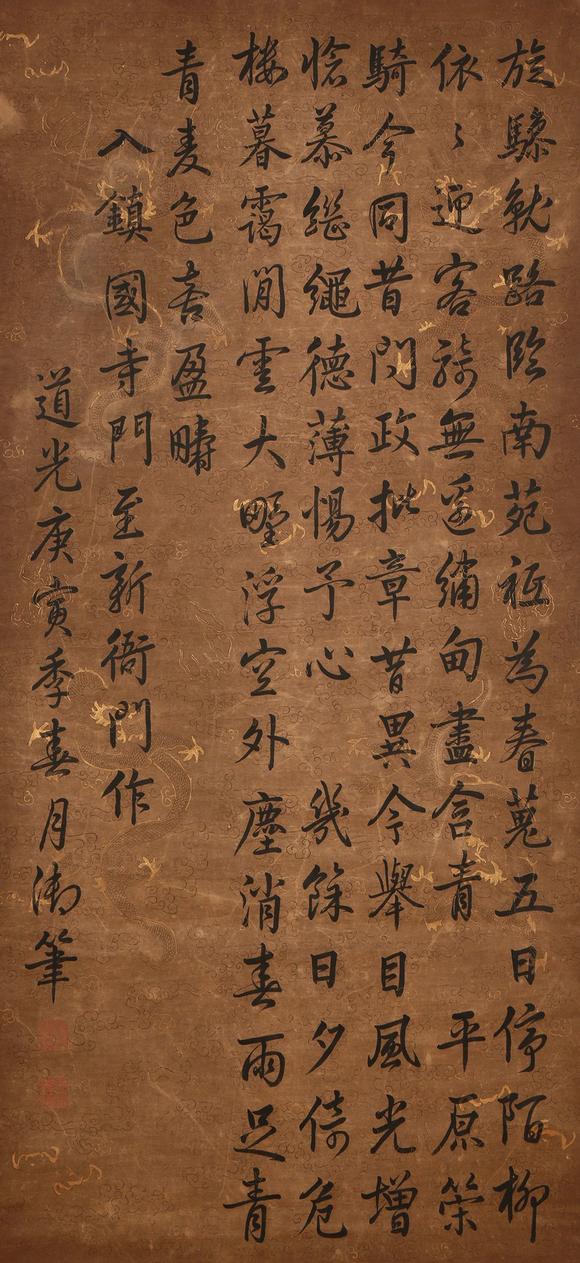 旋驂就路臨南苑祗為春蒐五日停陌柳
依〻迎客騎無邊繡甸盡含青 平原策
騎今同昔問政批章昔異今舉目風光增
愴慕繼繩德薄惕予心 幾餘日夕倚危
樓暮靄閒雲大野浮空外塵消春雨足青
青麥色喜盈疇
入鎮國寺門至新衙門作
道光庚寅季春月御筆